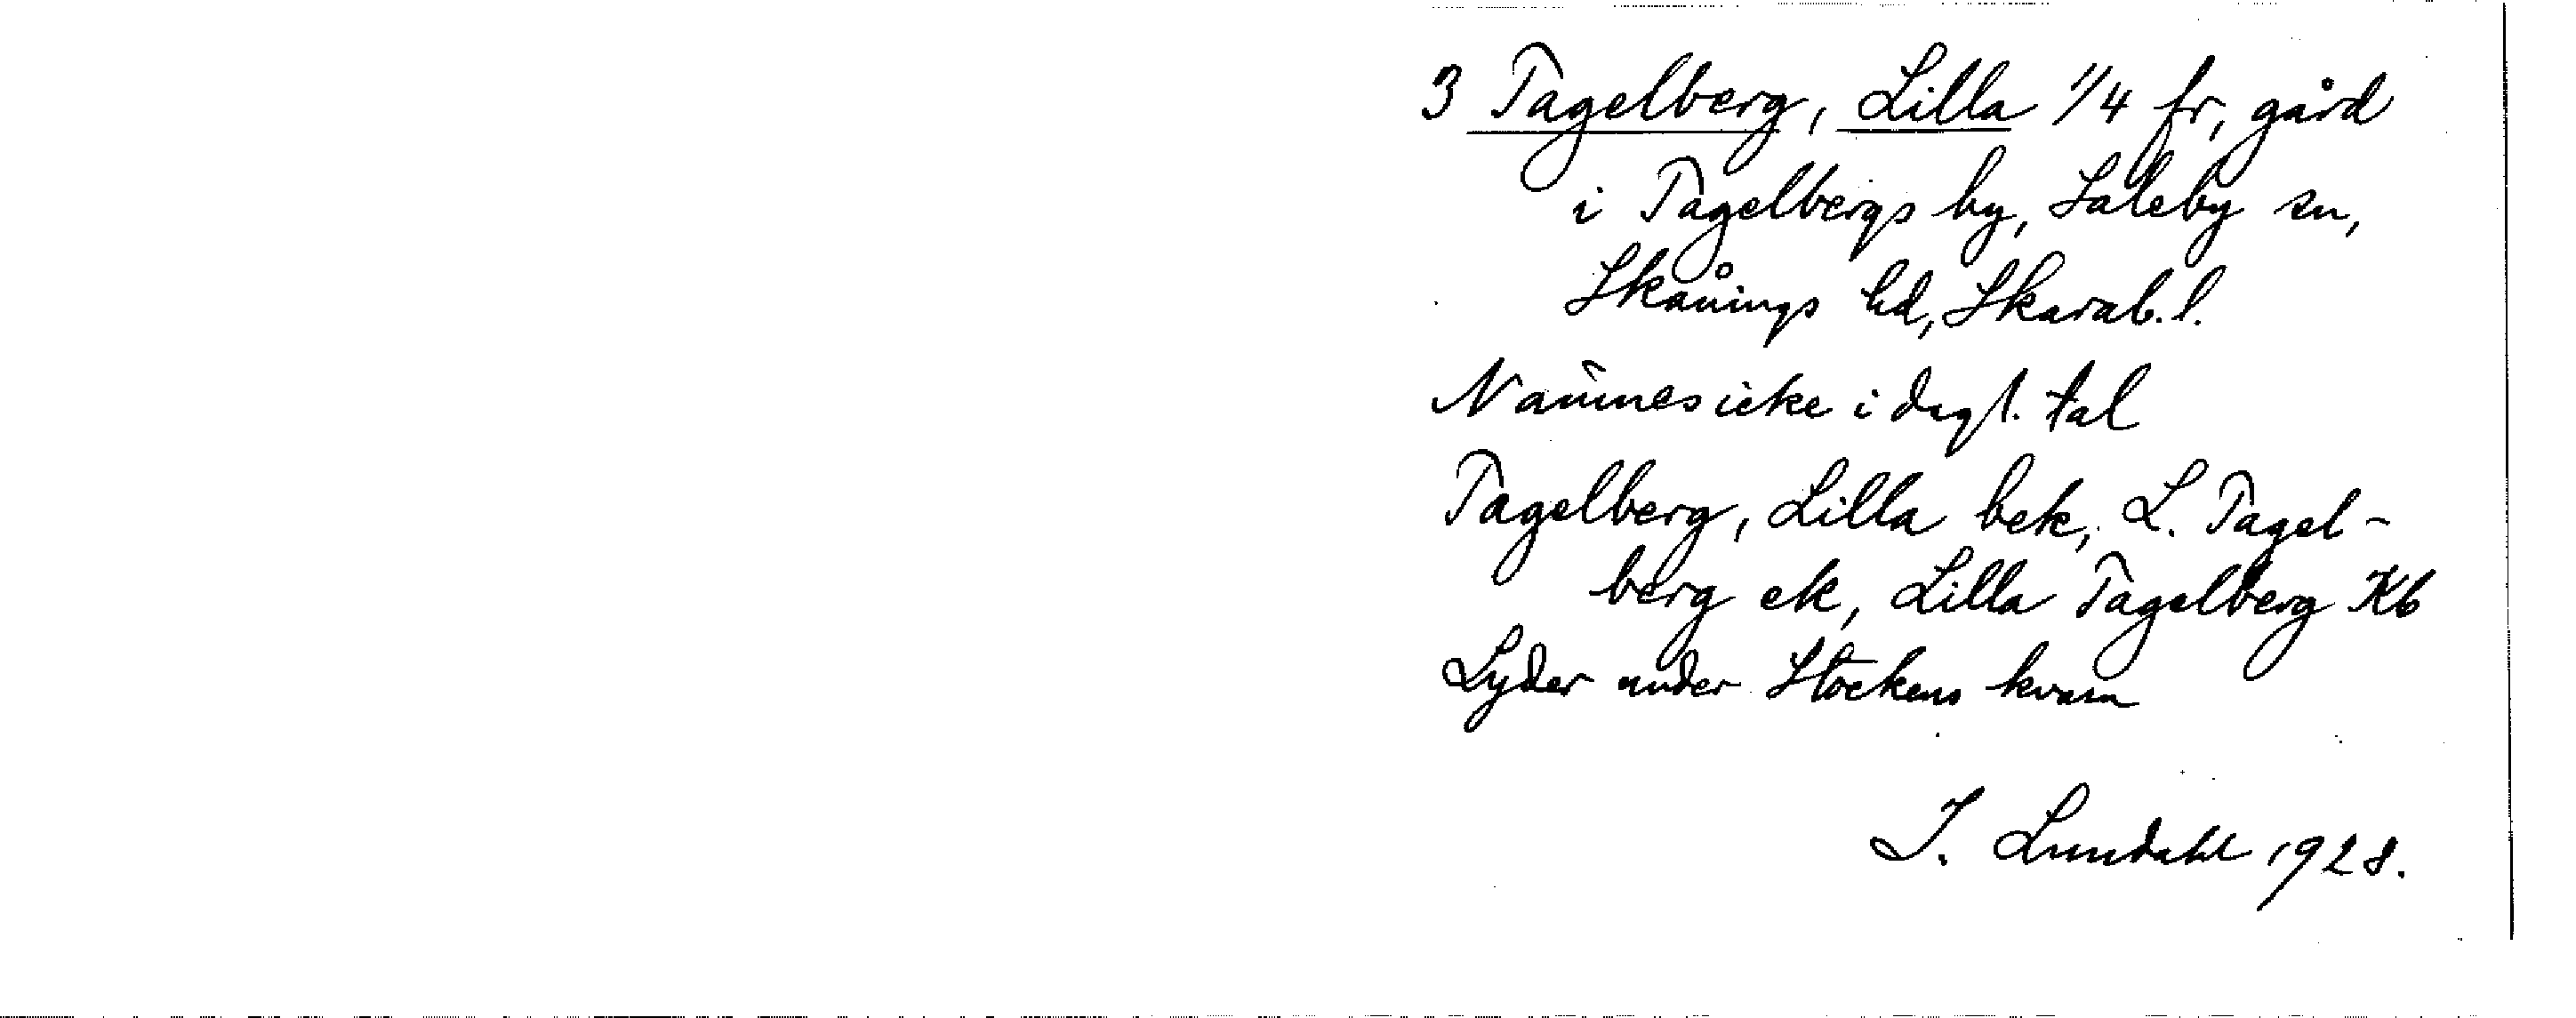 3 Tagelberg, Lilla 1/4 fr, gård
i Tagelbergs by, Saleby sn,
Skånings hd, Skarab. l.
Nämnes icke i dagl. tal
Tagelberg, Lilla bek, L. Tagel-
berg ek, Lilla Tagelberg Kb
Lyder under Stockens kvarn
I. Lundahl 1928.